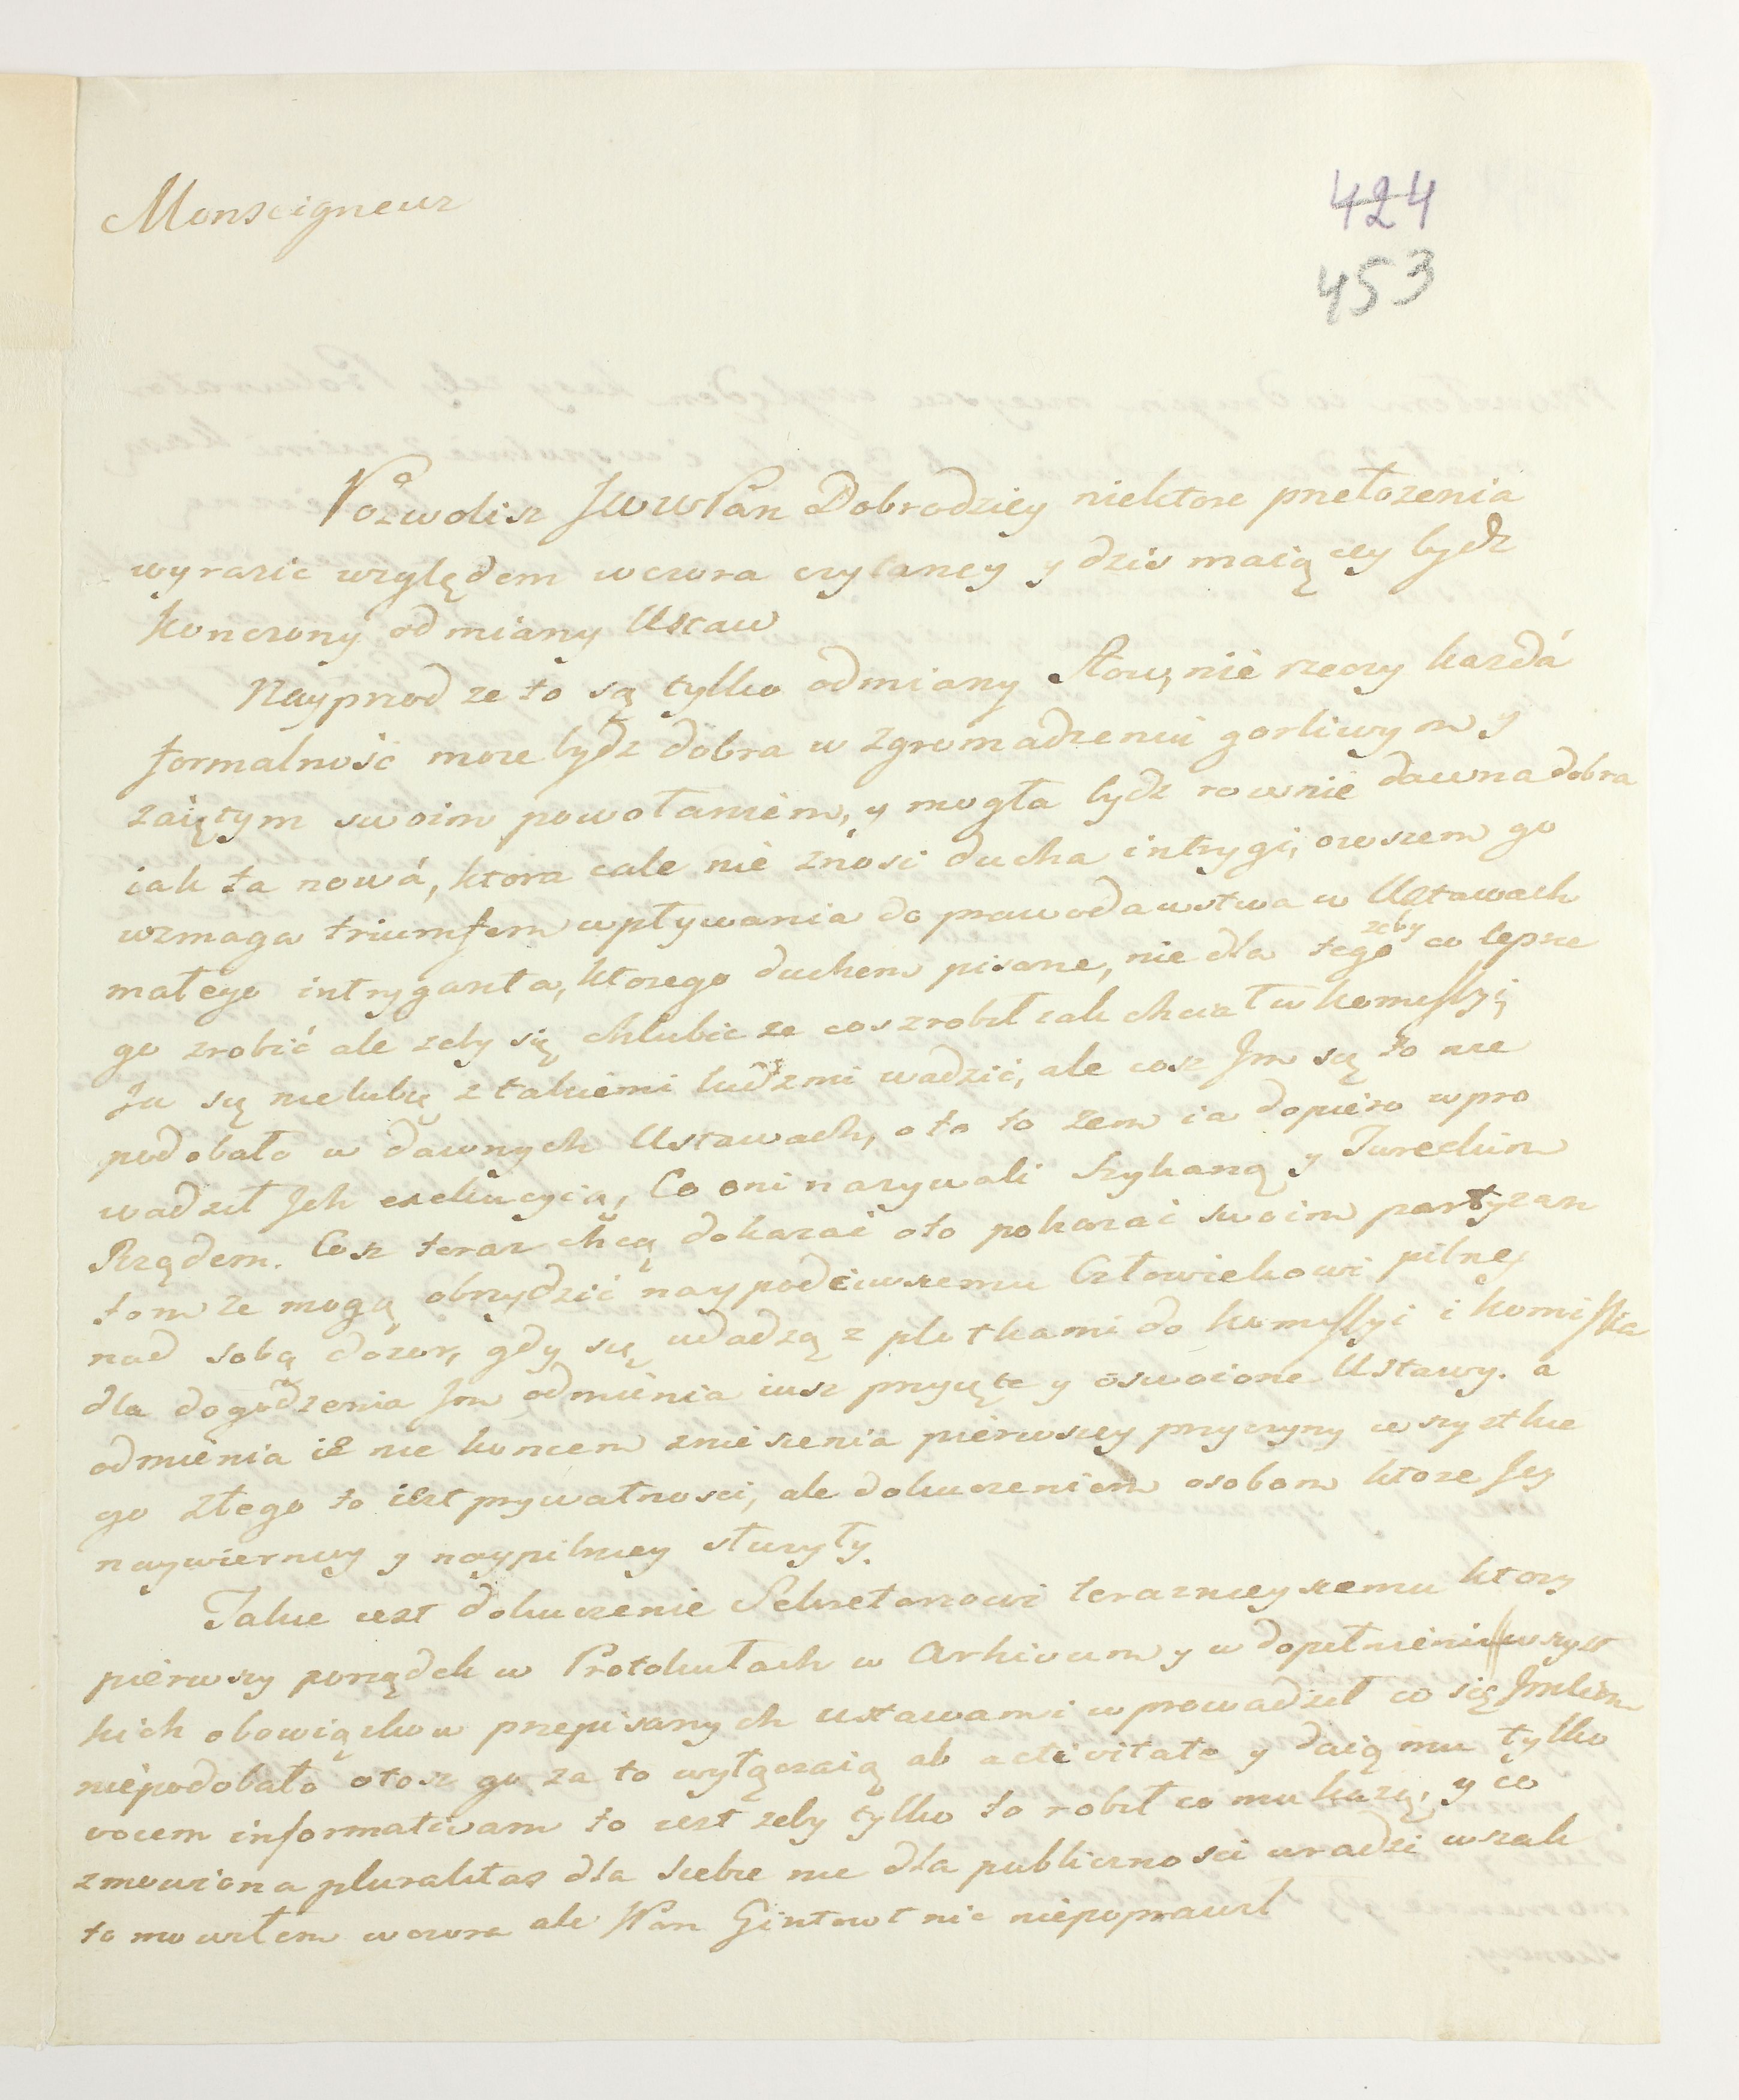 Monseigneur
424
453
Pozwolisz JWWPan Dobrodziey niektore przełozenia
wyrazic względem wczora czytaney y dzis maiącey bydz
konczony odmiany Ustaw
Nayprzod ze to są tylko odmiany Słow, nie rzeczy kazdá
formalnosc moze bydz dobra w zgromadzeniu gorliwym y
zaiętym swoim powołaniem, y mogła bydz rownie dawna dobra
iak ta nowá, ktora cale nie znosi ducha intrygi, owszem go
wzmaga triumfem wpływania do prawodawstwa w Ustawach
małego intryganta, ktorego duchem pisane, nie dla tego zeby co lepsze
go zrobić ale zeby się chlubic ze cos zrobił iak chciał w komissyi
Ja się nie lubię z takiemi ludzmi wadzic, ale cosz Jm się to nie
podobało w dawnych Ustawach, oto to zem ia dopiero wpro
wadził Jch exekucyią, Co oni nazywali szykaną y Tureckim
Rządem. Cosz teraz chcą dokazac oto pokazac swoim partyzan
tom ze mogą obrzydzić naypodciwszemu Człowiekowi pilnę
nad sobą dozor, gdy się udadzą z plotkami do komissyi i komissia
dla dogodzenia Jm odmienia iusz przyięte y oswoione Ustawy. a
odmienia ie nie koncem zniesienia pierwszey przyczyny wszystkie
go złego to iest prywatnosci, ale dokuczeniem osobom ktore Jey
naywierniey y naypilniey słuzyły.
Takie iest dokuczenie Sekretarzowi teraznieyszemu ktory
pierwszy porządek w Protokułach w Arhivum y w dopełnieniu wszyst
kich obowiązkow przepisanych ustawami wprowadził co się Jmkom
niepodobało otosz go za to wyłączaią ab activitate y daią mu tylko
vocem informativam to iest zeby tylko to robił co mu kazą, y co
zmowiona pluralitas dla siebie nie dla publicznosci uradzi wszak
to mowiłem wczora ale JPan Gintowt nic niepoprawił